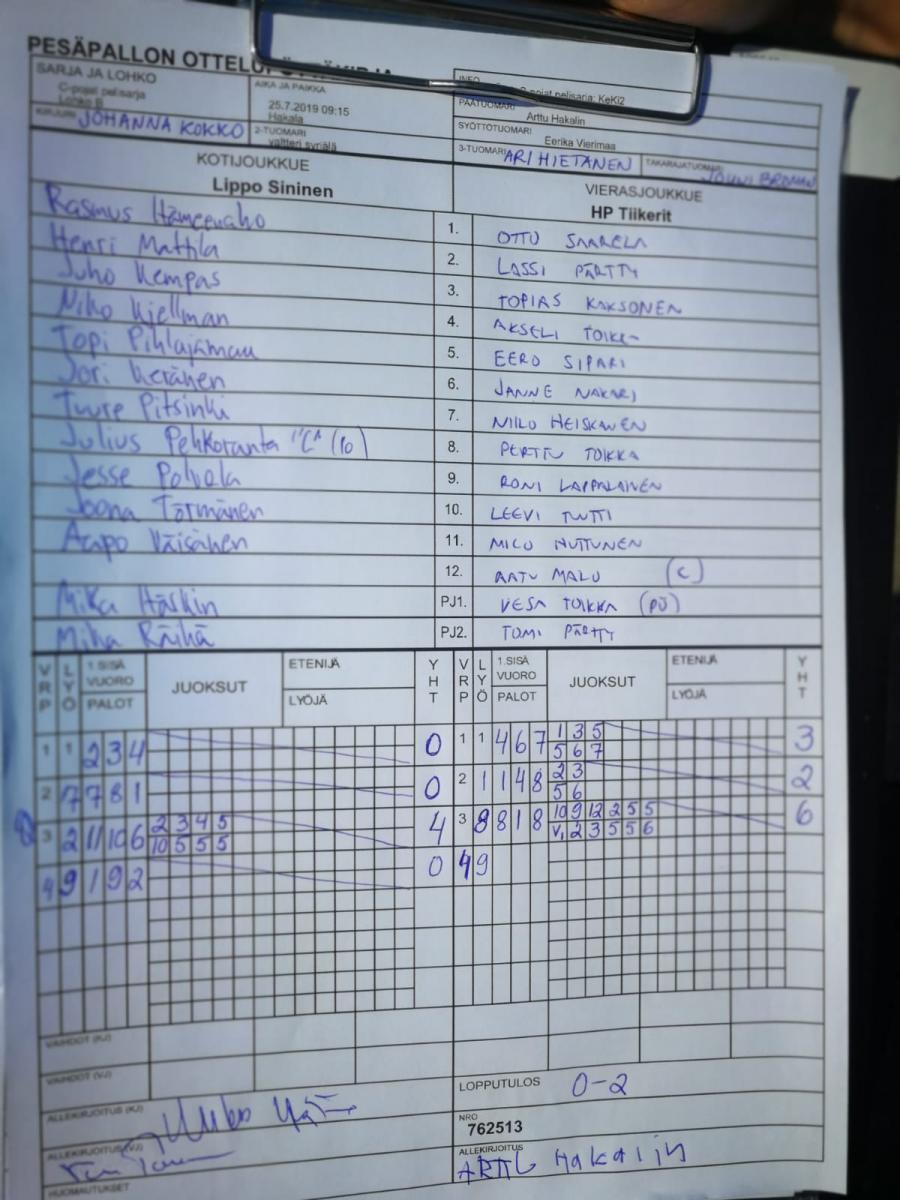 PESÄPALLON OTTELUPÖYTÄKIRJA
SARJA JA LOHKO
C-pojat pelisarja
Lohko B
AIKA JA PAIKKA
25.7.2019 09:15
Hakala
INFO
C-pojat pelisarja: KeKi2
PÄÄTUOMARI
Arttu Hakalin
KIRJURI JOHANNA KOKKO
2-TUOMARI
valtteri syrjälä
SYÖTTÖTUOMARI
Eerika Vierimaa
3-TUOMARI ARI HIETANEN
TAKARAJATUOMARI
JOUNI BROMAN
KOTIJOUKKUE
Lippo Sininen
VIERASJOUKKUE
HP Tiikerit
Rasmus Hämeenaho 1. OTTO SAARELA
Henri Mattila 2. LASSI PÄRTTY
Juho Kempas 3. TOPIAS KAKSONEN
Niko Kjellman 4. AKSELI TOIKKA
Topi Pihlajamaa 5. EERO SIPARI
Jori Keränen 6. JANNE NAKARI
Tuure Pitsinki 7. NIILO HEISKANEN
Julius Pehkoranta "C" (10) 8. PERTTU TOIKKA
Jesse Polvela 9. RONI LAPPALAINEN
Joona Törmänen 10. LEEVI TUUTTI
Aapo Väisänen 11. MICO HUTTUNEN
12. AATU MALO (C)
Mika Häskin PJ1. VESA TOIKKA (PJ)
Miha Räihä PJ2. TOMI PÄRTTY
VRP LYÖ 1.SISÄ VUORO PALOT JUOKSUT ETENIJÄ LYÖJÄ YHT VRP LYÖ 1.SISÄ VUORO PALOT JUOKSUT ETENIJÄ LYÖJÄ YHT
1 1 2 3 4 0 1 1 4 6 7 1 3 5 3
5 6 7
2 7 7 8 1 0 2 1 1 4 8 2 3 2
5 6
3 2 11 10 6 2 3 4 5 4 3 8 8 1 8 10 9 12 2 5 5 6
10 5 5 5 V, 2 3 5 5 6
4 9 1 9 2 0 4 9
VAIHDOT (KJ)
VAIHDOT (VJ)
ALLEKIRJOITUS (KJ)
LOPPUTULOS 0-2
NRO
762513
ALLEKIRJOITUS (VJ)
ALLEKIRJOITUS
ARTTU Hakalin
HUOMAUTUKSET